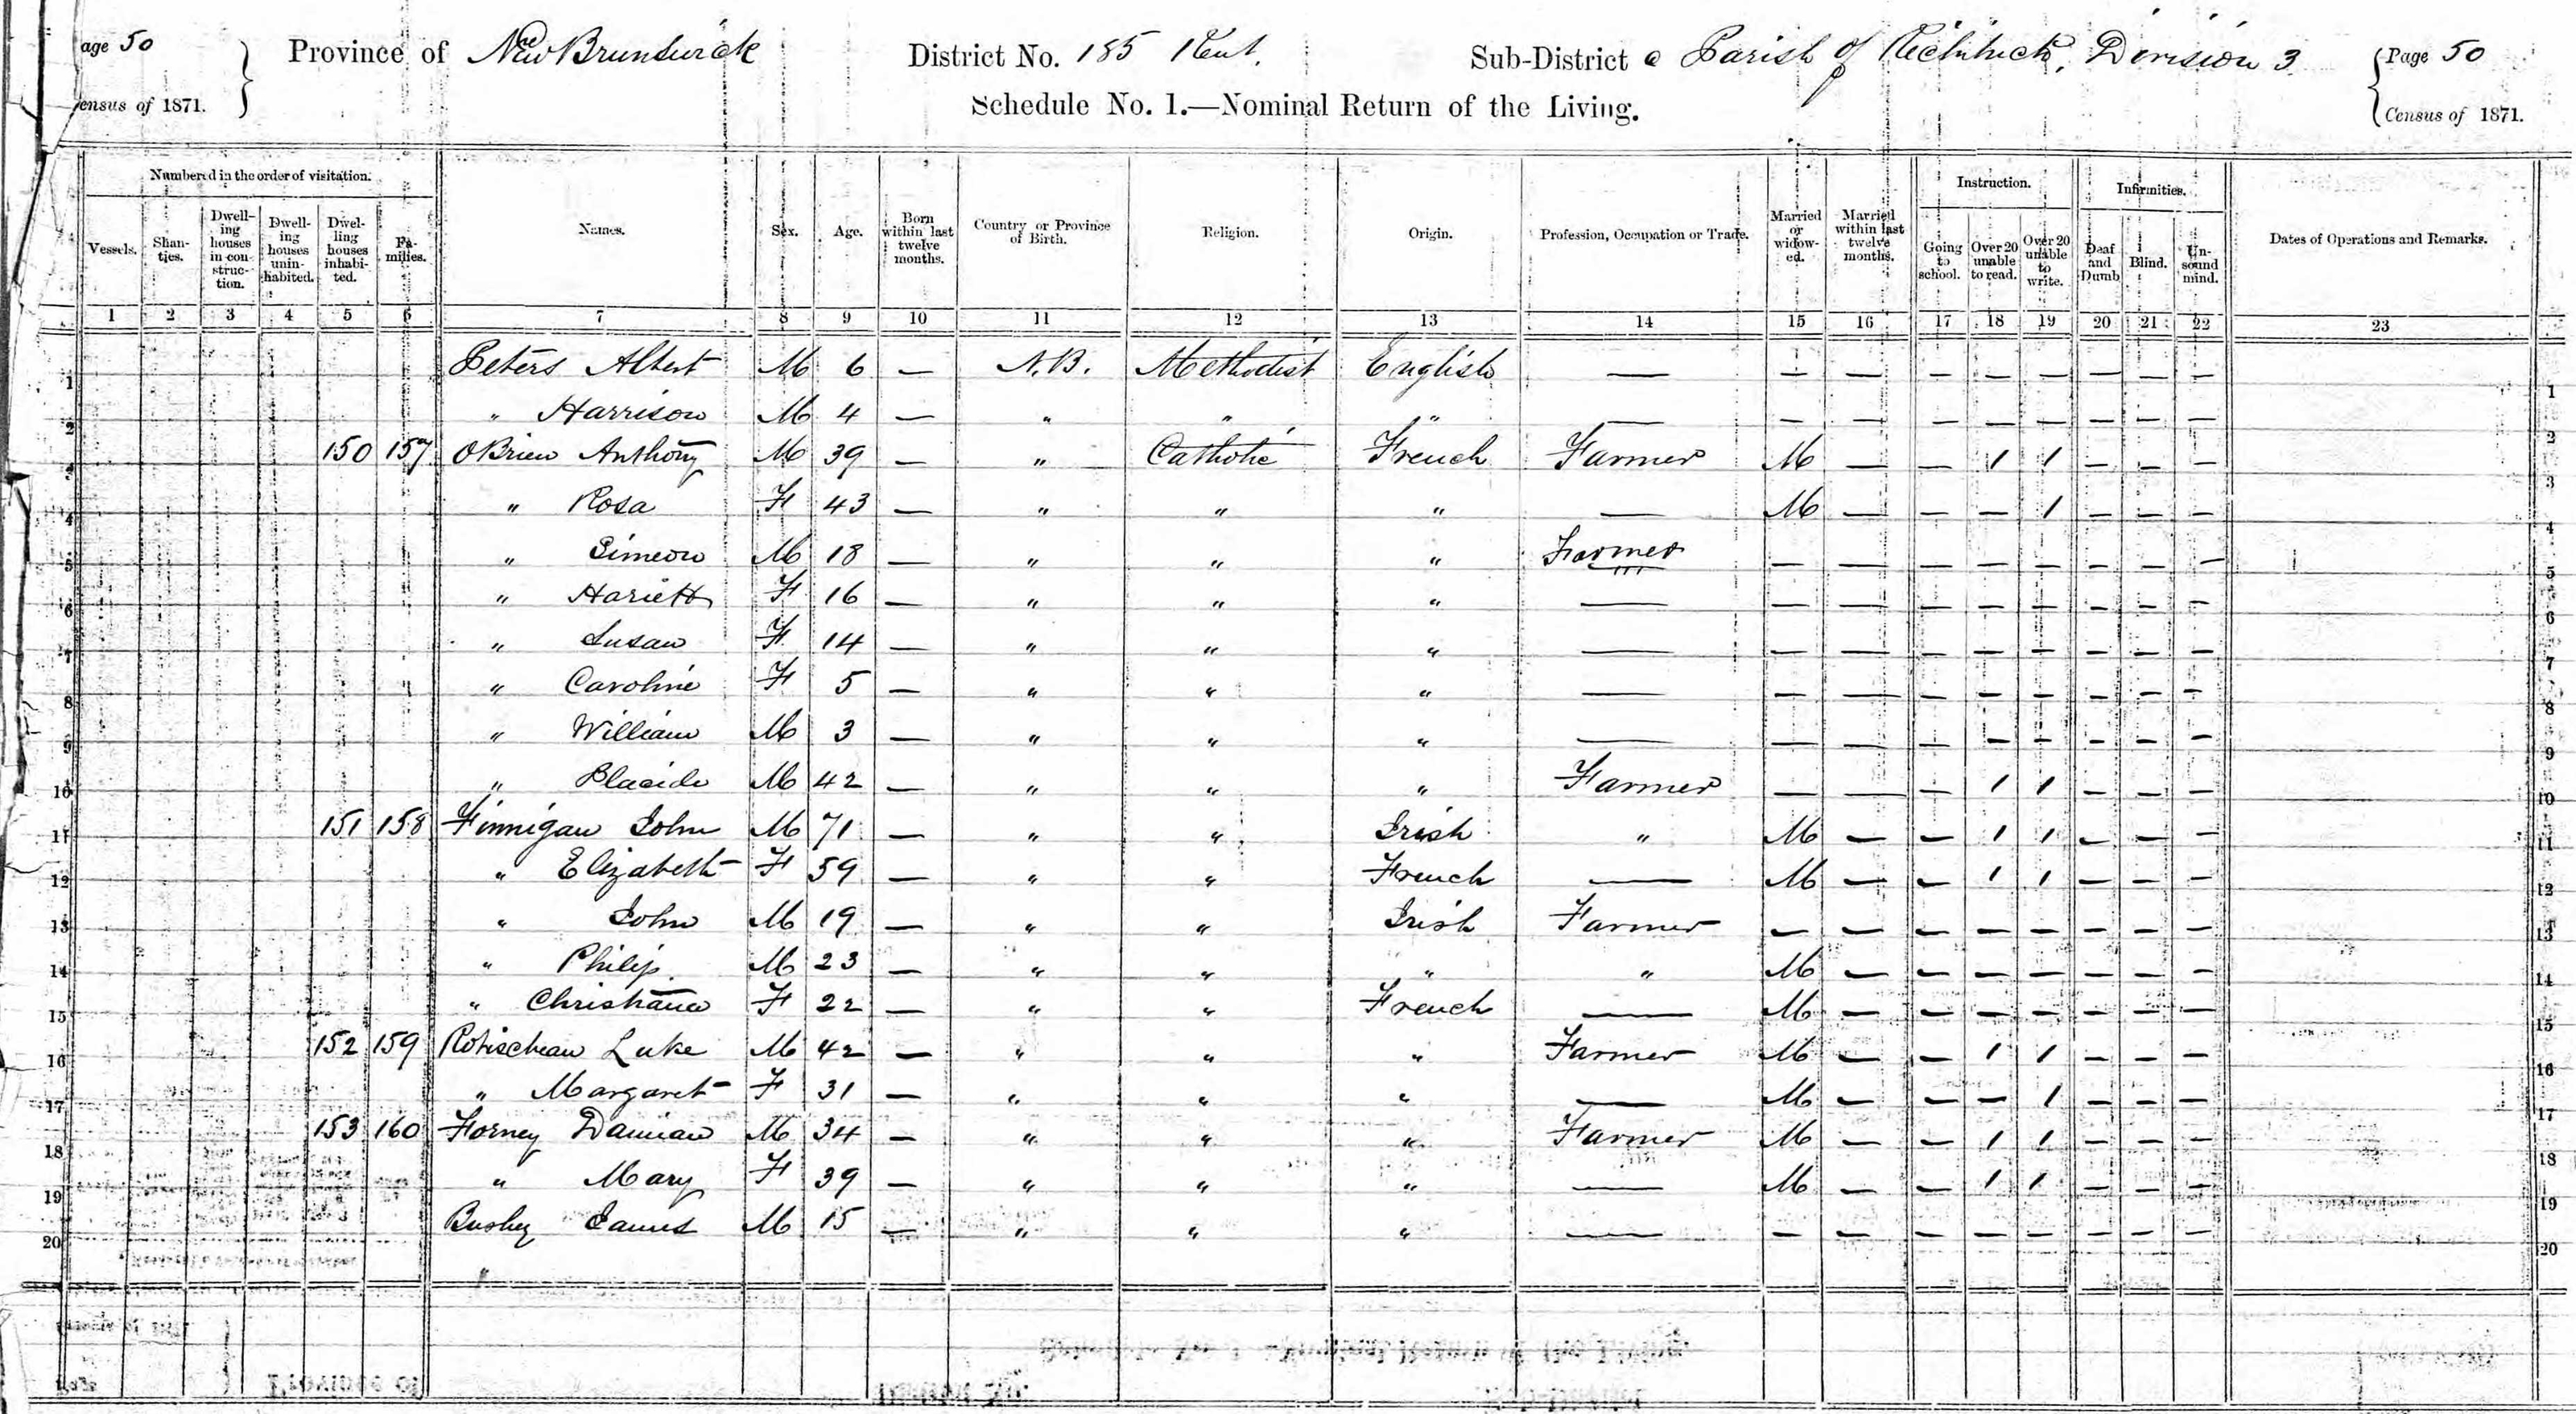 age 50 Province of New Brunswick District No. 185 Kent. Sub-District a Parish of Richibucto, Division 3 Page 50
ensus of 1871. Schedule No. 1.—Nominal Return of the Living. Census of 1871.
Numbered in the order of visitation. Instruction. Infirmities.
Vessels. Shan-ties. Dwell-ing houses in con-struc-tion. Dwell-ing houses unin-habited. Dwel-ling houses inhabi-ted. Fa-milies. Names. Sex. Age. Born within last twelve months. Country or Province of Birth. Religion. Origin. Profession, Occupation or Trade. Married or widow-ed. Married within last twelve months. Going to school. Over 20 unable to read. Over 20 unable to write. Deaf and Dumb Blind. Un-sound mind. Dates of Operations and Remarks.
1 2 3 4 5 6 7 8 9 10 11 12 13 14 15 16 17 18 19 20 21 22 23
1 Peters Albert M 6 — N.B. Methodist English — — — — — — — — — 1
2 " Harrison M 4 — " " " — — — — — — — — — 2
3 150 157 OBrien Anthony M 39 — " Catholic French Farmer M — — 1 1 — — — 3
4 " Rosa F 43 — " " " — M — — — 1 — — — 4
5 " Simeon M 18 — " " " Farmer — — — — — — — — 5
6 " Hariett F 16 — " " " — — — — — — — — — 6
7 " Susan F 14 — " " " — — — — — — — — — 7
8 " Caroline F 5 — " " " — — — — — — — — — 8
9 " William M 3 — " " " — — — — — — — — — 9
10 " Placide M 42 — " " " Farmer — — — 1 1 — — — 10
11 151 158 Finnigan John M 71 — " " Irish " M — — 1 1 — — — 11
12 " Elizabeth F 59 — " " French — M — — 1 1 — — — 12
13 " John M 19 — " " Irish Farmer — — — — — — — — 13
14 " Philip M 23 — " " " " M — — — — — — — 14
15 " Christiana F 22 — " " French — M — — — — — — — 15
16 152 159 Robischeau Luke M 42 — " " " Farmer M — — 1 1 — — — 16
17 " Margaret F 31 — " " " — M — — — 1 — — — 17
18 153 160 Forney Damian M 34 — " " " Farmer M — — 1 1 — — — 18
19 " Mary F 39 — " " " — M — — 1 1 — — — 19
20 Bushey James M 15 — " " " — — — — — — — — — 20